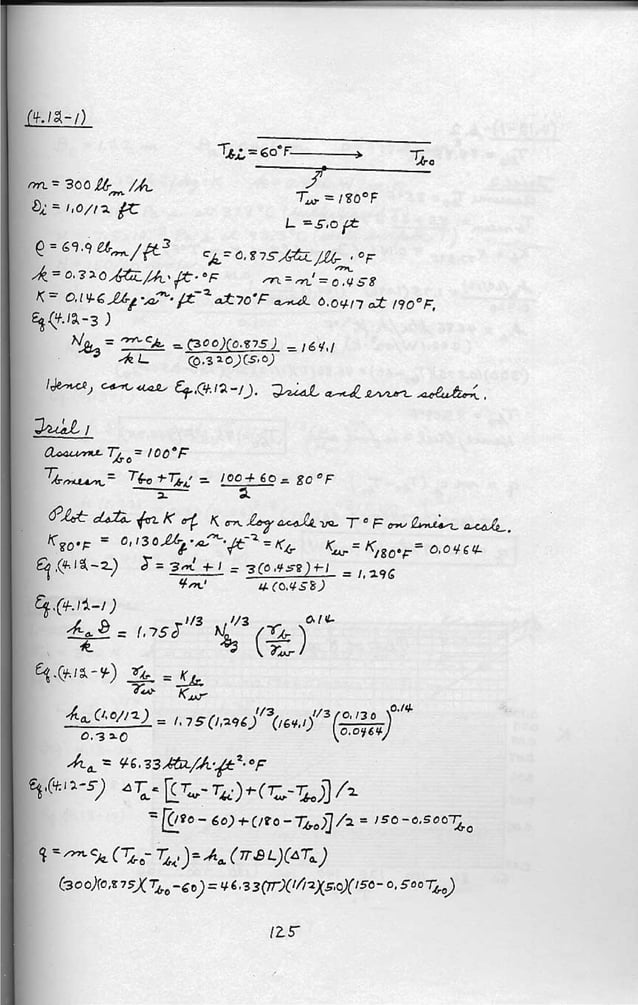 (4.12-1)
Tbi = 60°F → Tbo
m = 300 lbm/h
Di = 1.0/12 ft
Tw = 180°F
L = 5.0 ft
ρ = 69.9 lbm/ft³ cp = 0.875 btu/lbm·°F
k = 0.320 btu/h·ft·°F n = n' = 0.458
K = 0.146 lbf·sⁿ·ft⁻² at 70°F and 0.0417 at 190°F,
Eq (4.12-3)
NGz = m cp / kL = (300)(0.875) / (0.320)(5.0) = 164.1
Hence, can use Eq.(4.12-1). Trial and error solution.
Trial 1
Assume Tbo = 100°F
Tbmean = (Tbo + Tbi) / 2 = (100 + 60) / 2 = 80°F
Plot data for K of K on log scale vs T°F on linear scale.
K80°F = 0.130 lbf·sⁿ·ft⁻² = Kb Kw = K180°F = 0.0464
Eq.(4.12-2) δ = (3n' + 1) / 4n' = (3(0.458) + 1) / 4(0.458) = 1.296
Eq.(4.12-1)
ha D / k = 1.75 δ^1/3 NGz^1/3 (γb / γw)^0.14
Eq.(4.12-4) γb / γw = Kb / Kw
ha(1.0/12) / 0.320 = 1.75(1.296)^1/3 (164.1)^1/3 (0.130 / 0.0464)^0.14
ha = 46.33 btu/h·ft²·°F
Eq.(4.12-5) ΔTa = [(Tw-Tbi)+(Tw-Tbo)]/2
= [(180-60)+(180-Tbo)]/2 = 150-0.500Tbo
q = m cp (Tbo-Tbi) = ha (πDL)(ΔTa)
(300)(0.875)(Tbo-60) = 46.33(π)(1/12)(5.0)(150-0.500Tbo)
125